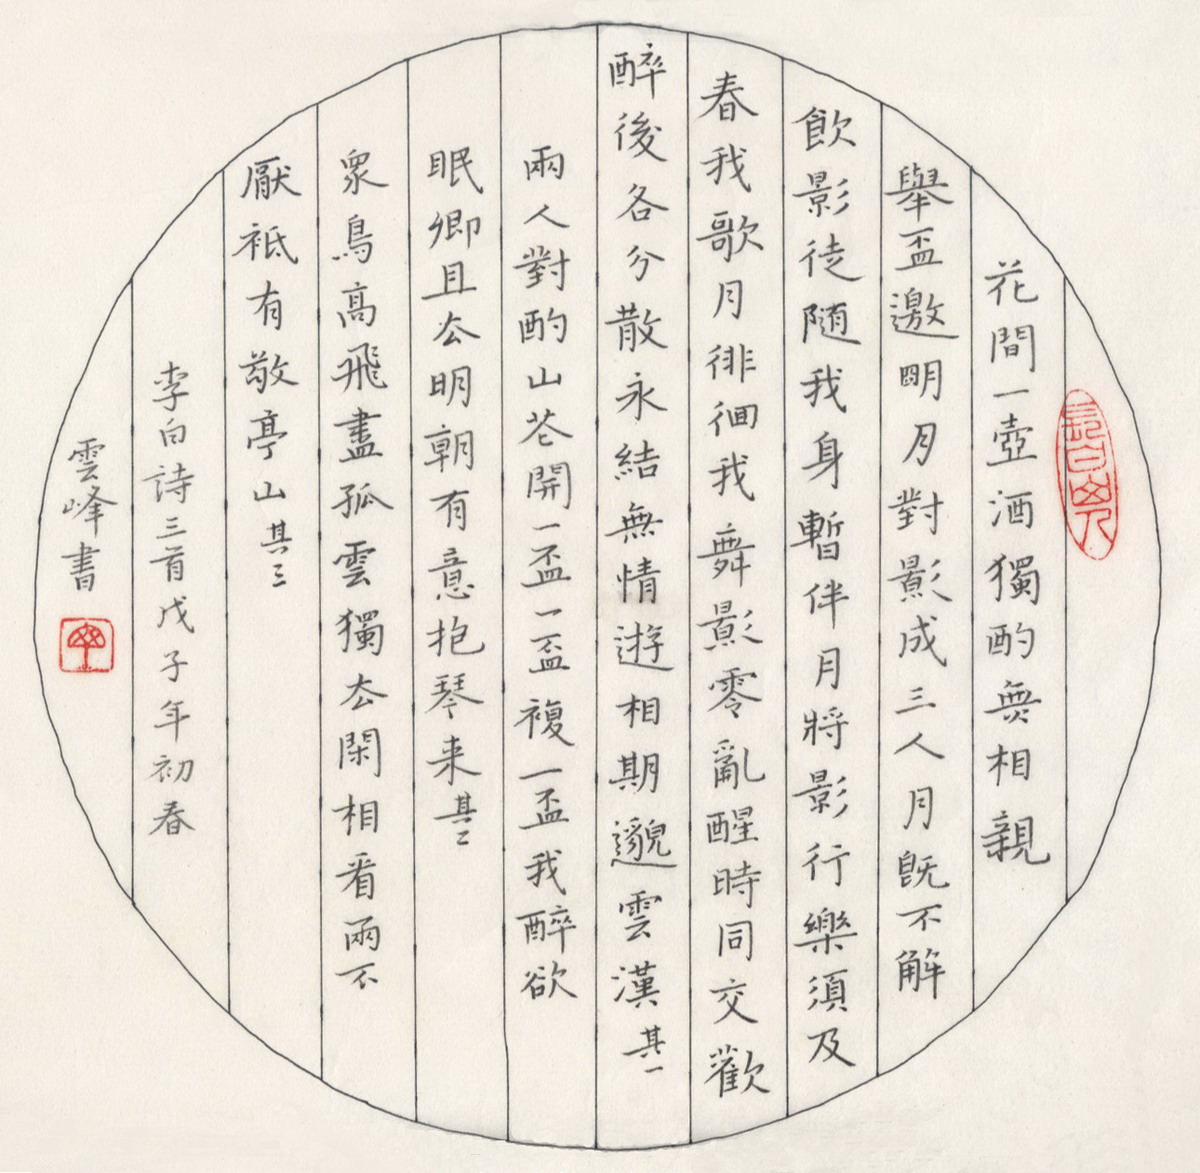 花間一壺酒獨酌無相親
舉盃邀明月對影成三人月既不解
飲影徒隨我身暫伴月將影行樂須及
春我歌月徘徊我舞影零亂醒時同交歡
醉後各分散永結無情遊相期邈雲漢其一
兩人對酌山花開一盃一盃複一盃我醉欲
眠卿且去明朝有意抱琴来其二
衆鳥高飛盡孤雲獨去閑相看兩不
厭祇有敬亭山其三
李白詩三首戊子年初春
雲峰書